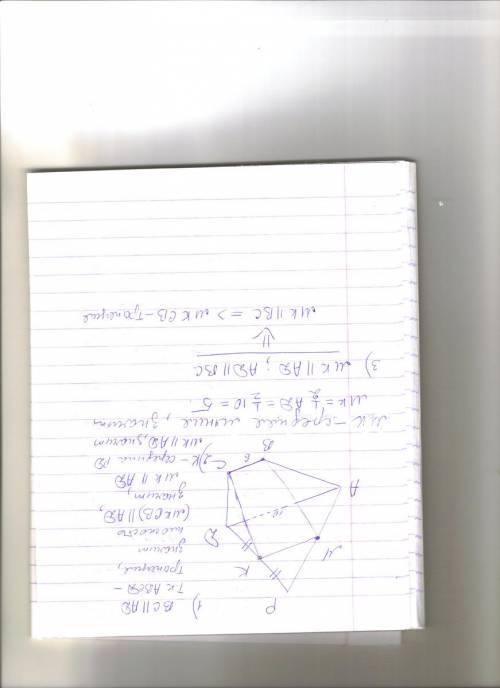 1) BC || AD
т.к ABCD –
трапеция,
значит
плоскость
(MKCB) || AD,
значит,
MK || AD
2) K – середина PD
MK || AD, значит
MK – средняя линия, значит
MK = 1/2 AD = 1/2 10 = 5
3) MK || AD ; AD || BC
⇓
MK || BC => MKCB – трапеция
P
M
K
A
D
B
C
10
6